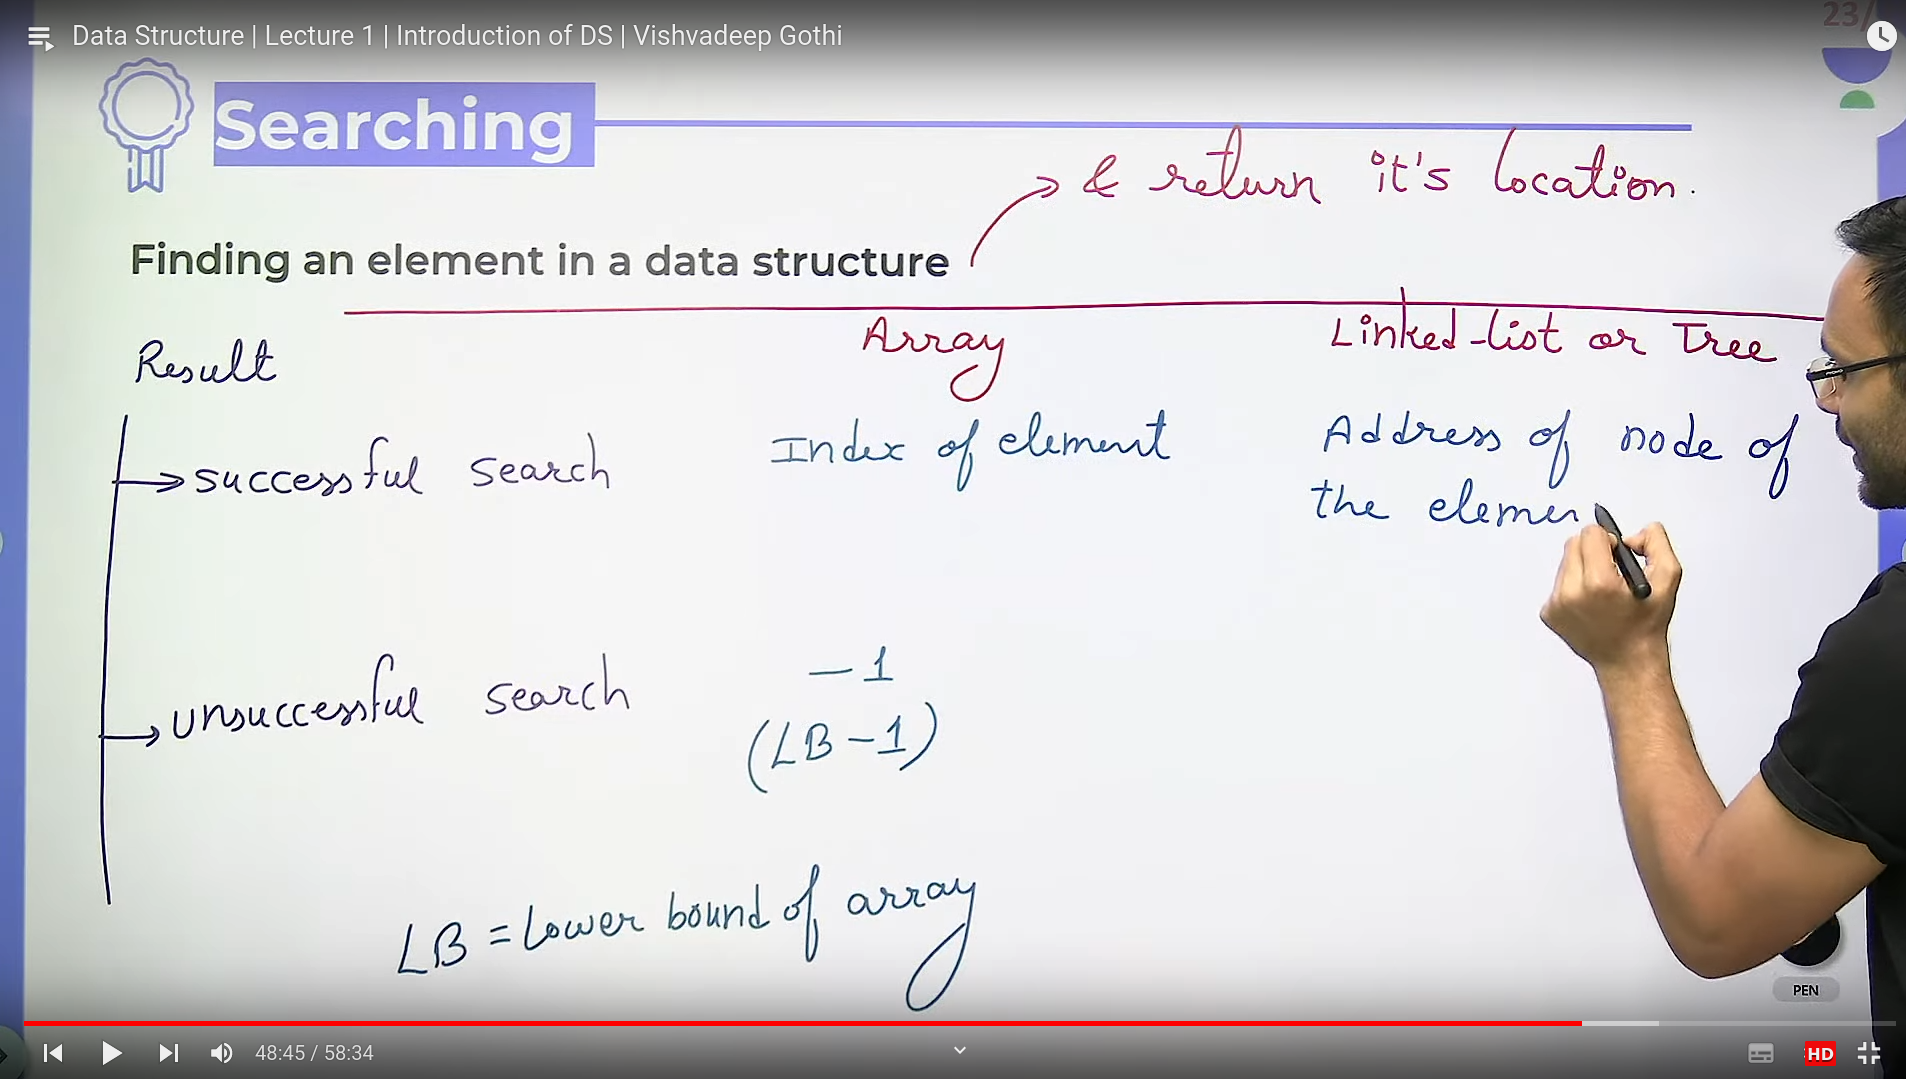 Data Structure | Lecture 1 | Introduction of DS | Vishvadeep Gothi
23/
Searching
& return it's location.
Finding an element in a data structure
Result
Array
Linked-list or Tree
successful search
Index of element
Address of node of
the elemen
unsuccessful search
-1
(LB-1)
LB = lower bound of array
PEN
48:45 / 58:34
HD